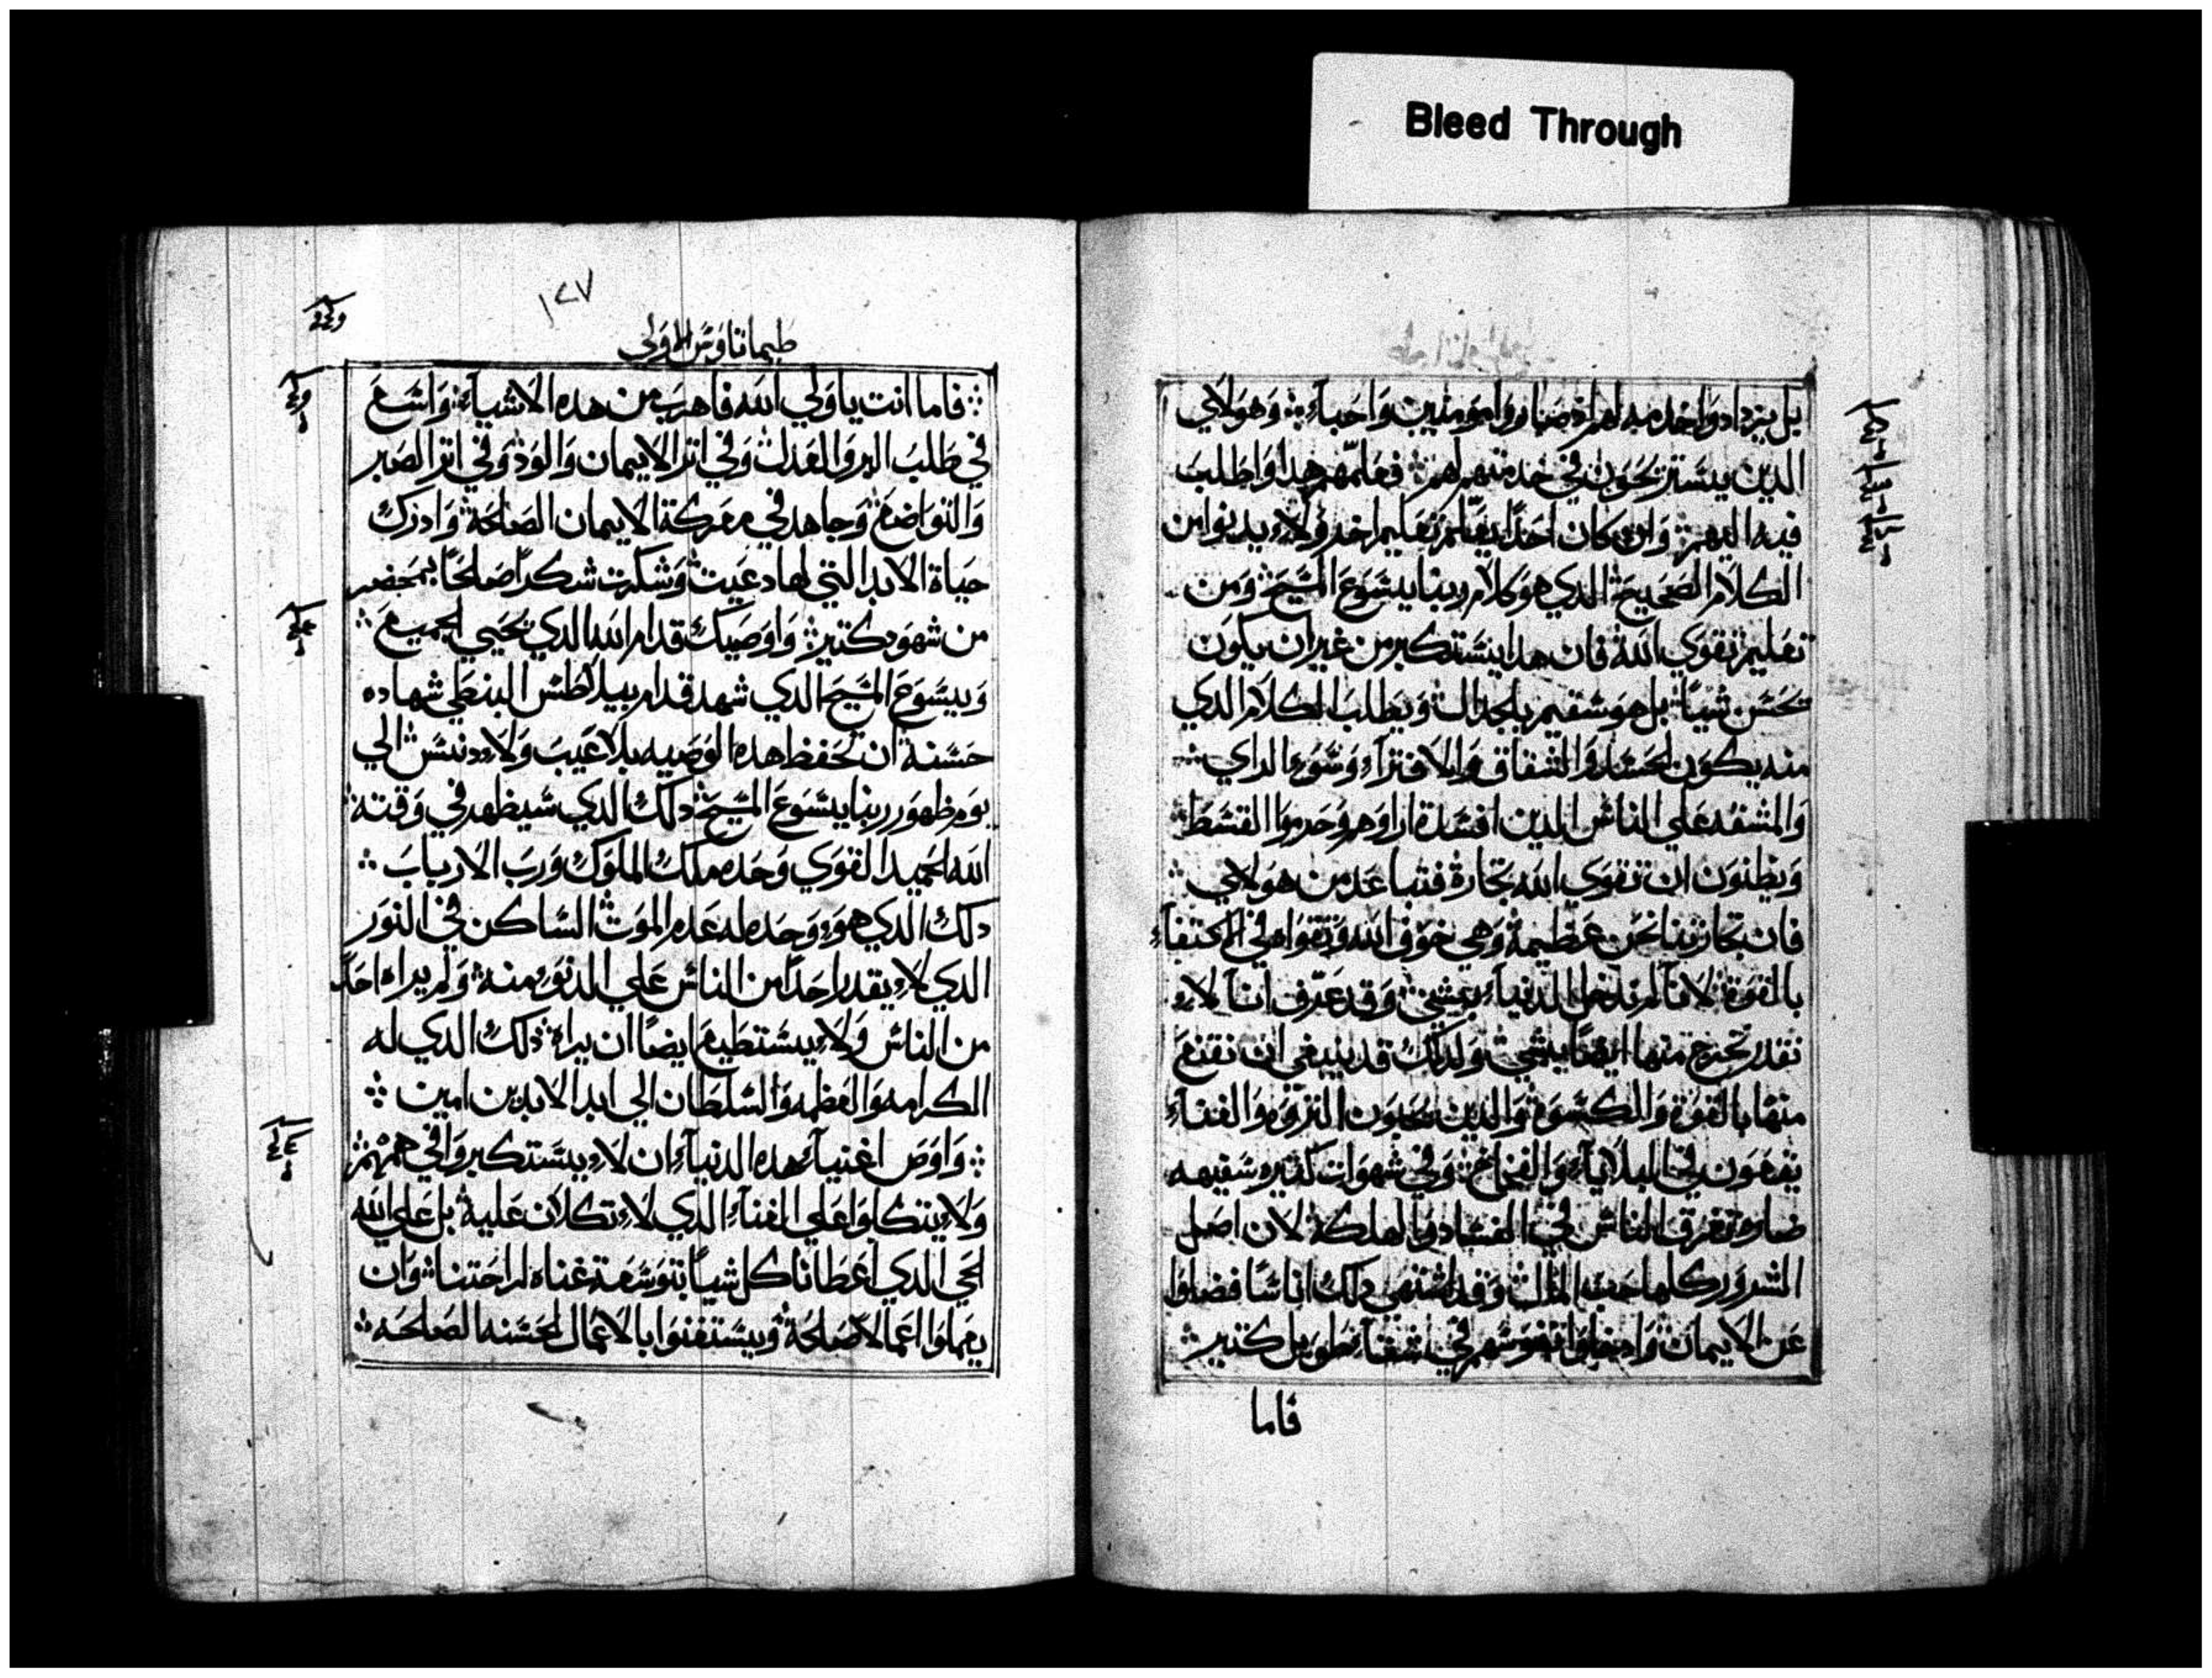 Bleed Through
بل يزدادوا خدمه لهم اد صاروا مومنين واحباء ۞ وهولاي
الدين يستريحون في خدمتهم لهم ۞ فعلمهم هدا واطلب
فيه اليهم ۞ وان كان احدًا يعلم تعليم اخر ولاء يدنوا من
الكلام الصحيح الدي هو كلام ربنا يسوع المسيح ۞ ومن
تعليم تقوي الله فان هدا يستكبر من غير ان يكون
يحسن شياً ۞ بل هو سقيم بلجدال ۞ ويطلب الكلام الدي
منه يكون الحسد والشقاق والافتراء وسوء الراي ۞
والمشقه علي الناس الدين افسدة اراوهم وحرموا القسط ۞
ويظنون ان تقوي الله تجارة فتباعد من هولاي ۞
فان تجارتنا نحن عظيمة وهي خوف الله وتقواه في اكتفاء
بالقوة لانا لم ندخل الدنياء بشي ۞ وقد عرف اننا لاء
نقدر نخرج منها ايضًا بشي ۞ ولدلك قد ينبغي ان نقنع
منها بالقوة والكسوة والدين يحبون التروه والغناء
يقعون في البلاياء والفخاخ ۞ وفي شهوات كتيره سفيهه
ضاره تغرق الناس في الفساد والهلكة لان اصل
الشرور كلها حب المال ۞ وقد اشتهي دلك اناسًا فضلوا
عن الايمان ۞ وادخلوا نفوسهم في شقاء طويل كتير ۞
فاما
١٢٧
طيماتاوس الاولي
۞ فاما انت يا ولي الله فاهرب من هده الاشياء ۞ واسع
في طلب البر والعدل ۞ وفي اتر الايمان والود ۞ وفي اتر الصبر
والتواضع ۞ وجاهد في معركة الايمان الصالحة ۞ وادرك
حياة الابد التي لها دعيت ۞ وشكرت شكرًا صالحًا بمحضر
من شهود كتير ۞ واوصيك قدام الله الدي يحيي الجميع ۞
وبيسوع المسيح الدي شهد قدام بيلاطس البنطي شهاده
حسنة ان تحفظ هده الوصيه بلا عيب ولاء دنس ۞ الي
يوم ظهور ربنا يسوع المسيح ۞ دلك الدي سيظهر في وقته ۞
الله الحميد القوي وحده ملك الملوك ورب الارباب ۞
دلك الدي هو وحده له عدم الموت ۞ الساكن في النور
الدي لاء يقدر احدًا من الناس علي الدنو منه ۞ ولم يراه احدًا
من الناس ولاء يستطيع ايضًا ان يراه ۞ دلك الدي له
الكرامه والعظمه والسلطان الي ابد الابدين امين ۞
۞ واوص اغنياء هده الدنياء ان لاء يستكبروا في هممهم ۞
ولاء يتكلوا علي الغناء الدي لاء تكلان عليه ۞ بل علي الله
الحي الدي اعطانا كل شياً بتوسعة غناه لراحتنا ۞ وان
يعملوا اعمالاً صالحة ۞ ويستغنوا بالاعمال الحسنه الصالحه ۞